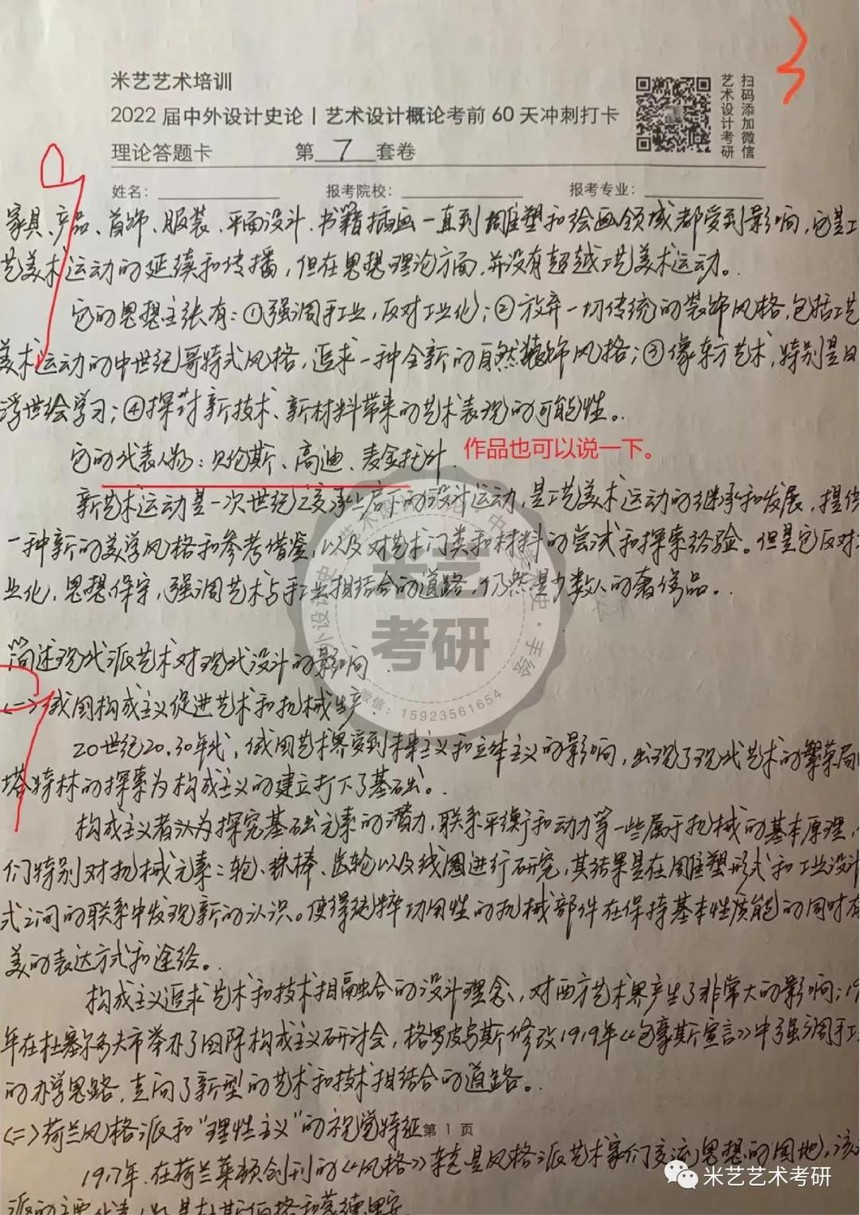 米艺艺术培训
2022届中外设计史论 | 艺术设计概论考前60天冲刺打卡
理论答题卡 第 7 套卷
扫码添加微信
艺术设计考研
3
姓名: 报考院校: 报考专业:
家具、产品、首饰、服装、平面设计、书籍插画一直到雕塑和绘画领域都受到影响,它是工
艺美术运动的延续和传播,但在思想理论方面,并没有超越工艺美术运动。
它的思想主张有:①强调手工业,反对工业化;②放弃一切传统的装饰风格,包括工艺
美术运动的中世纪哥特式风格,追求一种全新的自然装饰风格;③像东方艺术,特别是日
浮世绘学习;④探讨新技术、新材料带来的艺术表现的可能性。
它的代表人物:贝伦斯、高迪、麦金托什.
作品也可以说一下。
新艺术运动是一次世纪之交承上启下的设计运动,是工艺美术运动的继承和发展,提供
一种新的美学风格和参考借鉴,以及对艺术门类和材料的尝试和探索经验。但是它反对
业化,思想保守,强调艺术与手工业相结合的道路,仍然是少数人的奢侈品。
简述现代派艺术对现代设计的影响
<一>俄国构成主义促进艺术和机械生产
20世纪20、30年代,俄国艺术界受到未来主义和立体主义的影响,出现了现代艺术的繁荣局
塔特林的探索为构成主义的建立打下了基础。
构成主义者认为探究基础元素的潜力,联系平衡和动力等一些属于机械的基本原理,
们特别对机械元素:轮、秩棒、齿轮以及线圈进行研究,其结果是在雕塑形式和工业设计
式之间的联系中发现新的认识。使得纯粹功用性的机械部件在保持基本性质能的同时有
美的表达方式和途径。
构成主义追求艺术和技术相融合的设计理念,对西方艺术界产生了非常大的影响;19
年在杜塞尔多夫市举办了国际构成主义研讨会,格罗皮乌斯修改1919年《包豪斯宣言》中强调手工
的办学思路,走向了新型的艺术和技术相结合的道路。
<二>荷兰风格派和“理性主义”的视觉特征
第 1 页
1917年,在荷兰莱顿创刊的《风格》杂志是风格派艺术家们交流思想的园地,该
派的主要代表人物是杜斯伯格和蒙德里安
米艺考研
微信:15923561654
米艺艺术考研